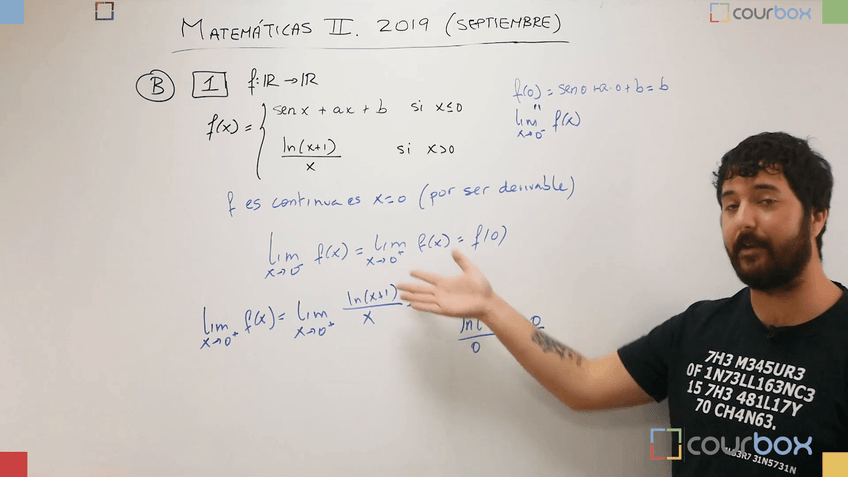 courbox
MATEMÁTICAS II. 2019 (SEPTIEMBRE)
B 1 f: ℝ → ℝ
f(x) = { sen x + ax + b si x ≤ 0
ln(x+1)/x si x > 0
f(0) = sen 0 + a·0 + b = b
"
lim x→0⁻ f(x)
f es continua es x=0 (por ser derivable)
lim x→0⁻ f(x) = lim x→0⁺ f(x) = f(0)
lim x→0⁺ f(x) = lim x→0⁺ ln(x+1)/x =
ln( /0 0
7H3 M345UR3
0F 1N73LL163NC3
15 7H3 481L17Y
70 CH4N63.
31N5731N
courbox